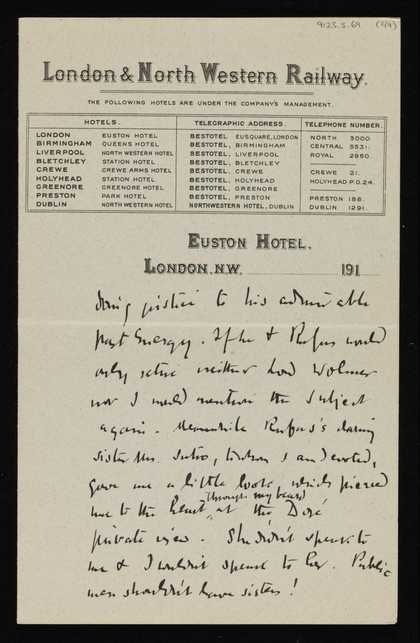 9/23.5.69 (4/4)
London & North Western Railway.
THE FOLLOWING HOTELS ARE UNDER THE COMPANY'S MANAGEMENT.
HOTELS. TELEGRAPHIC ADDRESS. TELEPHONE NUMBER.
LONDON EUSTON HOTEL BESTOTEL, EUSQUARE, LONDON NORTH 3000
BIRMINGHAM QUEENS HOTEL BESTOTEL, BIRMINGHAM CENTRAL 5531.
LIVERPOOL NORTH WESTERN HOTEL BESTOTEL, LIVERPOOL ROYAL 2950.
BLETCHLEY STATION HOTEL BESTOTEL, BLETCHLEY
CREWE CREWE ARMS HOTEL BESTOTEL, CREWE CREWE 21.
HOLYHEAD STATION HOTEL BESTOTEL, HOLYHEAD HOLYHEAD P.O.24.
GREENORE GREENORE HOTEL BESTOTEL, GREENORE
PRESTON PARK HOTEL BESTOTEL, PRESTON PRESTON 186.
DUBLIN NORTH WESTERN HOTEL NORTHWESTERN HOTEL, DUBLIN DUBLIN 1291.
EUSTON HOTEL.
LONDON, N.W. 191
doing justice to his admirable
past energy. If he & Rufus would
only retire neither Lord Wolmer
nor I would mention the subject
again. Meanwhile Rufus's daring
sister Mrs. Sutro, whom I am devoted,
gave me a little look, which pierced
me to the heart through my beard at the Doré
private view. She didn't speak to
me & I couldn't speak to her. Public
men shouldn't have sisters!